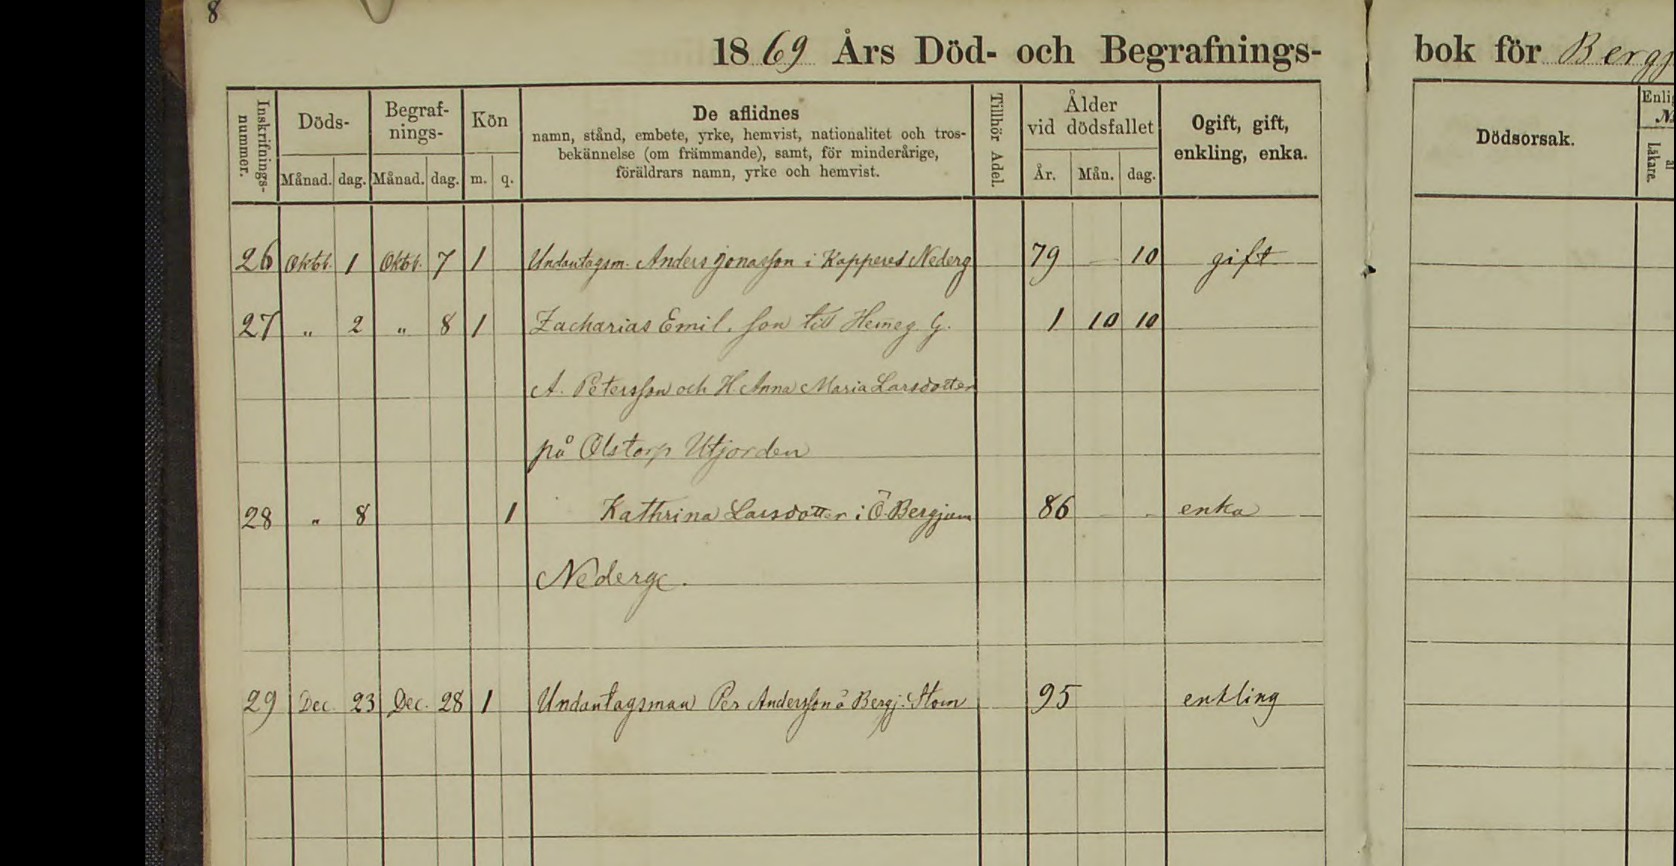 8
1869 Års Död- och Begrafnings-
bok för Bergj
Inskrifnings-
nummer.
Döds-
Månad. dag.
Begraf-
nings-
Månad. dag.
Kön
m. q.
De aflidnes
namn, stånd, embete, yrke, hemvist, nationalitet och tros-
bekännelse (om främmande), samt, för minderårige,
föräldrars namn, yrke och hemvist.
Tillhör Adel.
Ålder
vid dödsfallet
År. Mån. dag.
Ogift, gift,
enkling, enka.
Dödsorsak.
Enli
Läkare.
26 Oktbr. 1 Oktbr. 7 1 Undantagsm. Anders Jonasson i Kappered Nederg 79 — 10 gift
27 „ 2 „ 8 1 Zacharias Emil. son till Hemeg. G. 1 10 10
A. Petersson och H Anna Maria Larsdotter
på Olstorp Utjorden
28 „ 8 1 Kathrina Larsdotter i Ö Bergjum 86 - - enka
Nederg.
29 Dec 23 Dec. 28 1 Undantagsman Per Andersson å Bergj. Stom 95 enkling